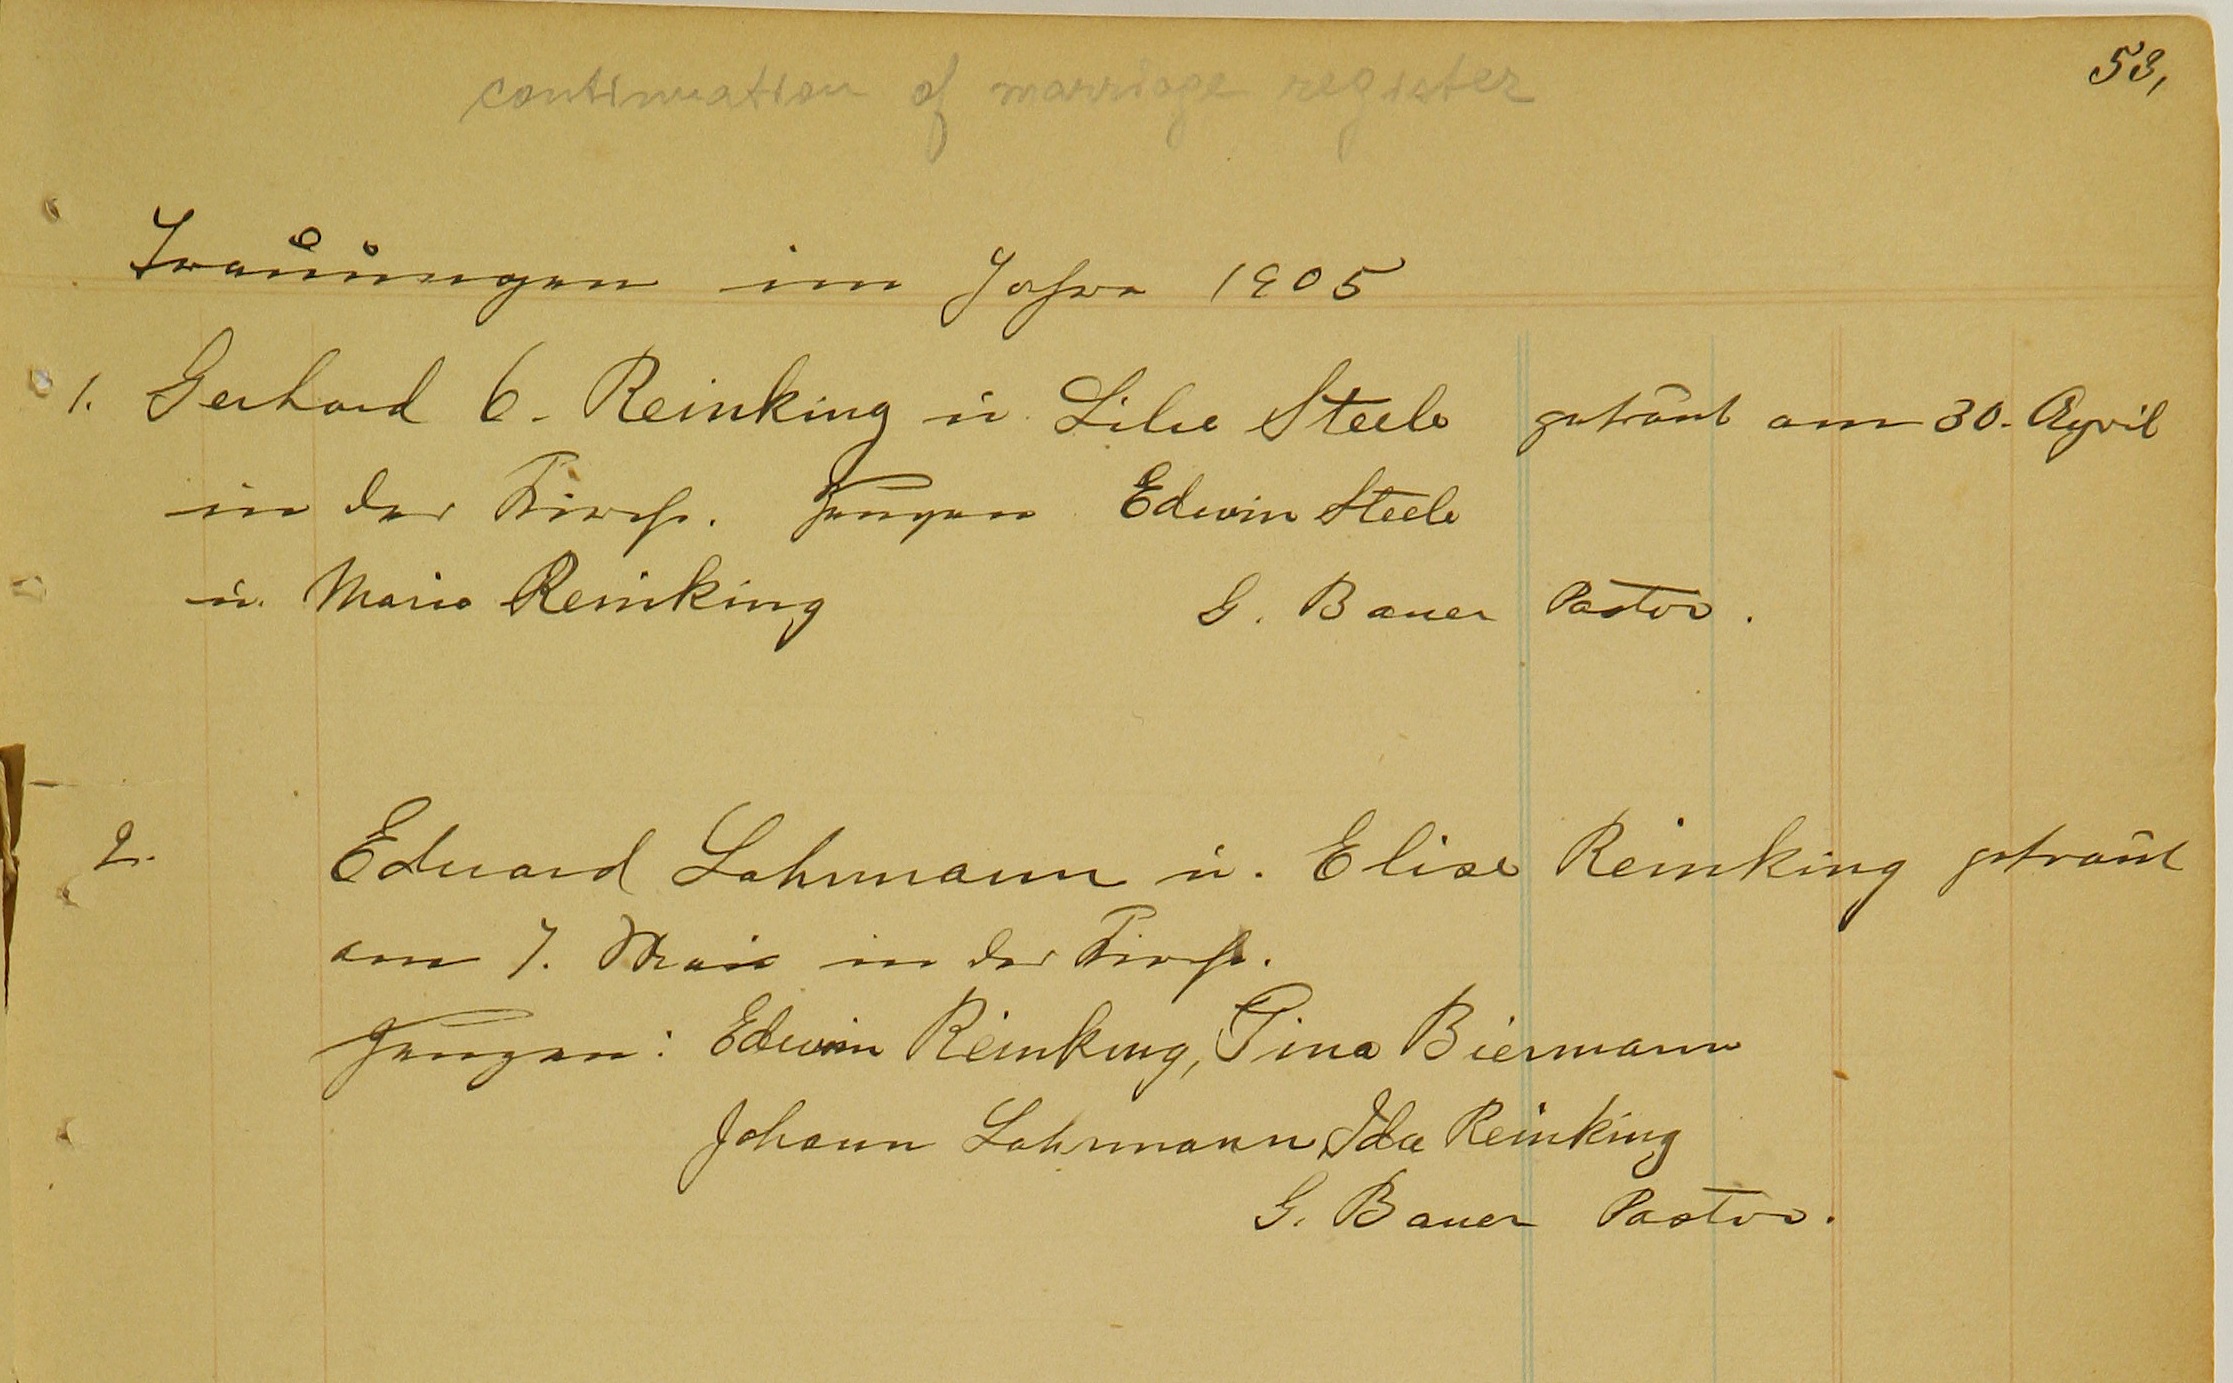 continuation of marriage register
53,
Trauungen im Jahre 1905
1. Gerhard C. Reinking u. Lilie Steele getraut am 30. April
in der Kirche. Zeugen Edwin Steele
u. Marie Reinking G. Bauer Pastor.
2. Eduard Lahrmann u. Elise Reinking getraut
am 7. Mai in der Kirche.
Zeugen: Edwin Reinking, Tina Biermann
Johann Lahrmann, Ida Reinking
G. Bauer Pastor.